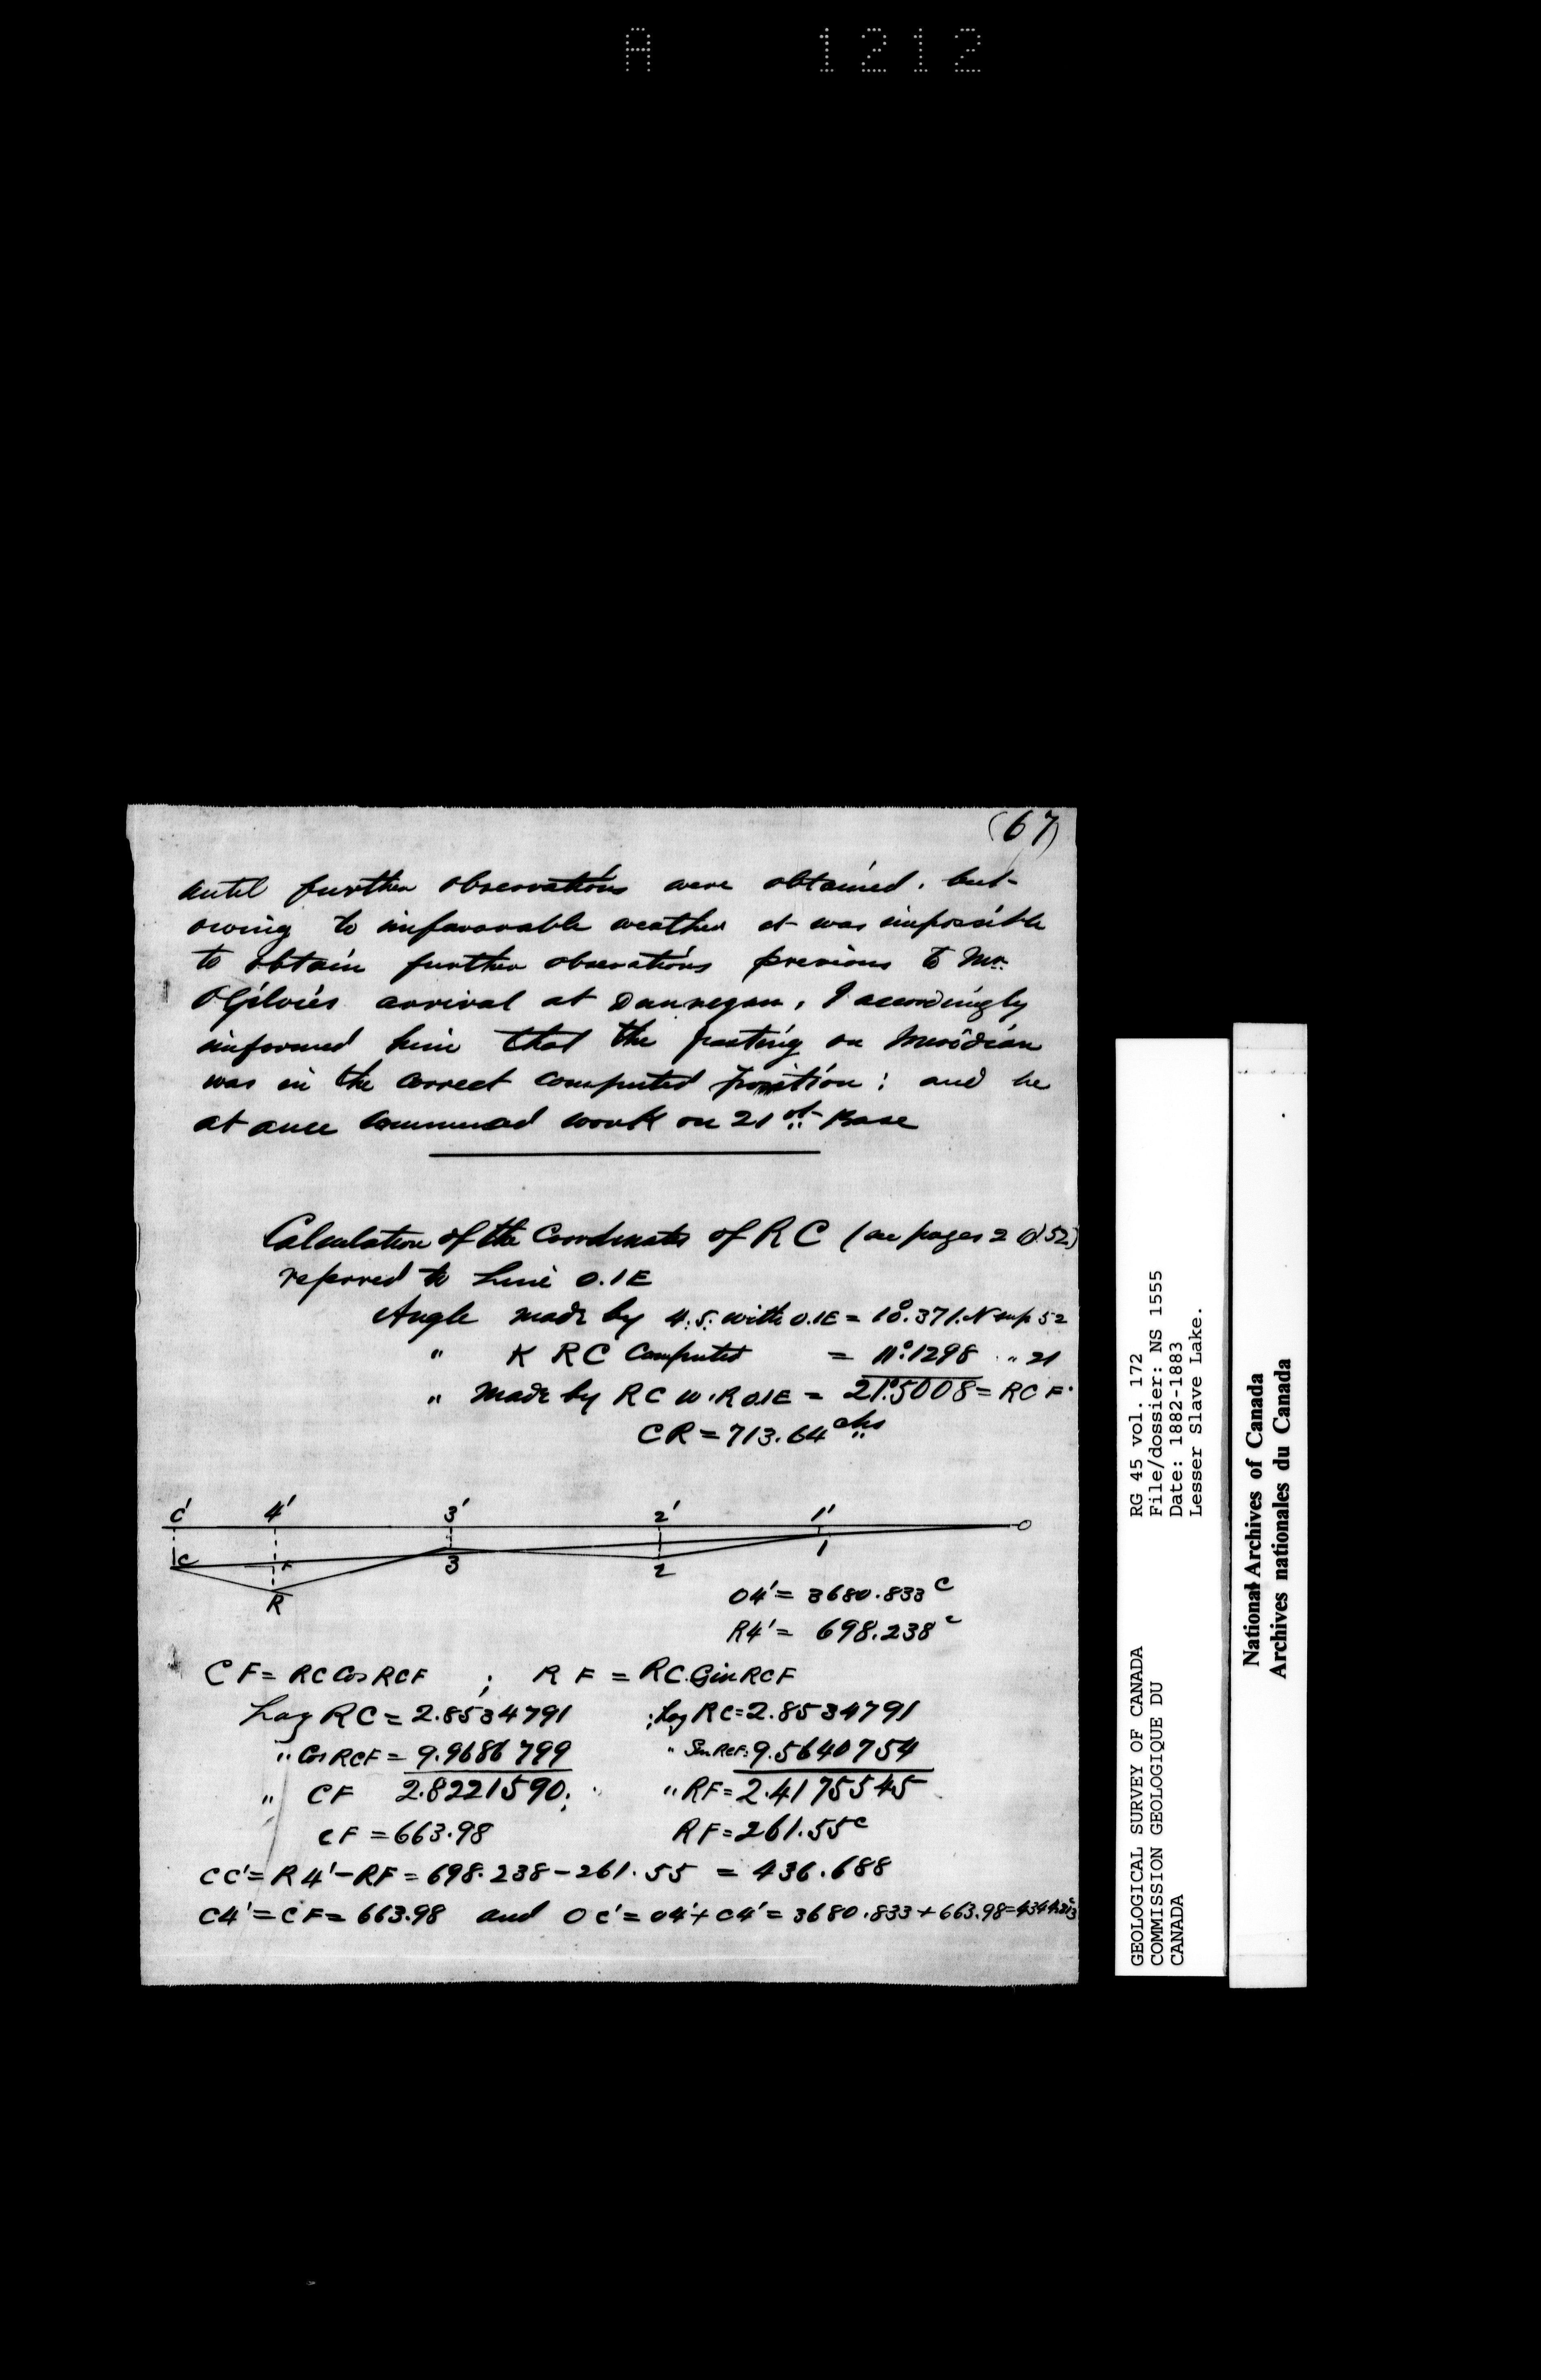 A 1212
(67)
until further observations were obtained. but
owing to unfavorable weather it was impossible
to obtain further observations previous to Mr.
OGilvies arrival at Dunvegan, I accordingly
informed him that the posting on Meridian
was in the correct computed position: and he
at once commenced work on 21st Base
Calculation of the Coordinates of RC (see pages 2 @ 52)
referred to Line 0.1E
Angle made by 4.5. with 0.1E = 10°.371. N 52
" K RC Computed = 11°.1298 " 21
" made by RC W.R 0.1E = 21°.5008 = RCF.
CR = 713.64 chs
C' 4' 3' 2' 1' O
C F 3 2 1
R
O4' = 3680.833 c
R4' = 698.238 c
CF = RC Cos RCF ; RF = RC. Sin RCF
Log RC = 2.8534791 ; Log RC = 2.8534791
" Cos RCF = 9.9686799 " Sin RCF = 9.5640754
" CF 2.8221590 ; " RF = 2.4175545
CF = 663.98 RF = 261.55 c
CC' = R4' - RF = 698.238 - 261.55 = 436.688
C4' = CF = 663.98 and OC' = O4' + C4' = 3680.833 + 663.98 = 4344.813
GEOLOGICAL SURVEY OF CANADA RG 45 vol. 172
COMMISSION GEOLOGIQUE DU File/dossier: NS 1555
CANADA Date: 1882-1883
Lesser Slave Lake.
National Archives of Canada
Archives nationales du Canada